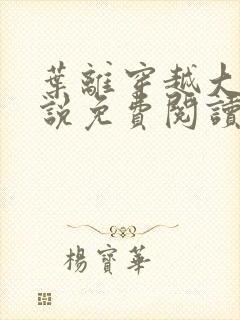 葉離穿越大
說免費閱讀
楊寶華